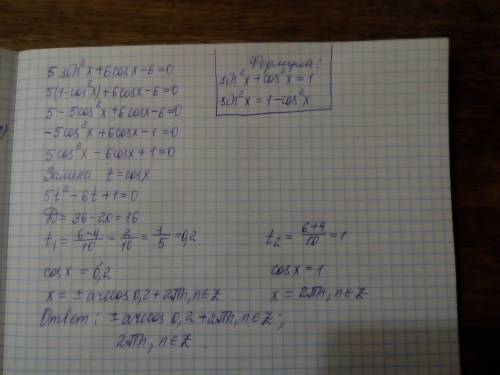 5 sin²x+6cosx-6=0
5(1-cos²x)+6cosx-6=0
5-5cos²x+6cosx-6=0
-5cos²x+6cosx-1=0
5cos²x-6cosx+1=0
Замена t=cosx
5t²-6t+1=0
D=36-20=16
t₁=(6-4)/10=2/10=1/5=0,2
t₂=(6+4)/10=1
cosx=0,2
cosx=1
x=±arccos0,2+2πn,n∈Z
x=2πn,n∈Z
Ответ: ±arccos0,2+2πn,n∈Z;
2πn,n∈Z.
Формула:
sin²x+cos²x=1
sin²x=1-cos²x